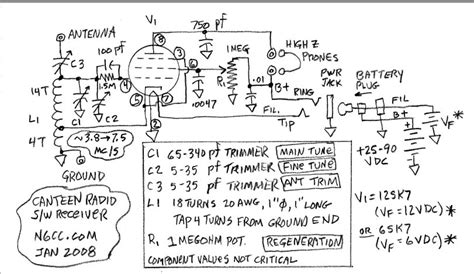 ANTENNA
V1
750 pf
C3
100 pf
1.5M
8
3
4
6
5
7
2
1 MEG
R1
.0047
.01
HIGH Z
PHONES
B+
RING
PWR
JACK
BATTERY
PLUG
FIL.
B+
VF*
FIL.
TIP
+25-90
VDC
14T
L1
4T
C1
C2
~3.8→7.5
MC/S
GROUND
CANTEEN RADIO
S/W RECEIVER
N6CC.COM
JAN 2008
C1 65-340 pf TRIMMER MAIN TUNE
C2 5-35 pf TRIMMER FINE TUNE
C3 5-35 pf TRIMMER ANT TRIM
L1 18 TURNS 20 AWG, 1"Ø, 1" LONG
TAP 4 TURNS FROM GROUND END
R1 1 MEGOHM POT. REGENERATION
COMPONENT VALUES NOT CRITICAL
V1 = 12SK7
(VF = 12VDC)*
OR 6SK7
(VF = 6VDC)*